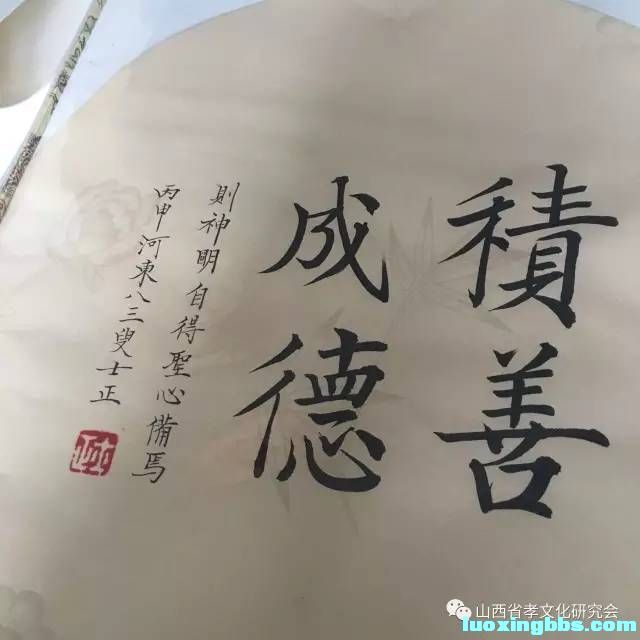 積善
成德
則神明自得聖心備焉
丙申河東八三叟士正
山西省孝文化研究会
luoxingbbs.com